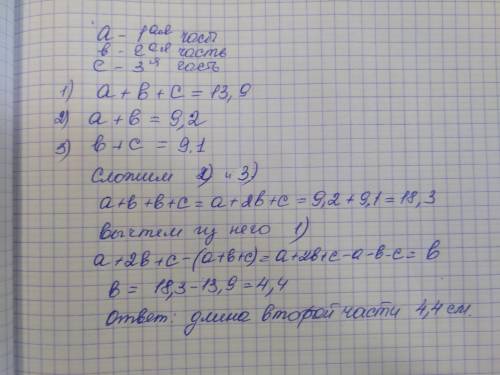 а - 1ая часть
в - 2ая часть
с - 3я часть
1) а + в + с = 13,9
2) а + в = 9,2
3) в + с = 9.1
Сложим 2) и 3)
а+в +в+с = а+2в+с = 9,2+9,1 = 18,3
вычтем из него 1)
а+2в+с-(а+в+с)= а+2в+с-а-в-с= в
в = 18,3-13,9=4,4
Ответ: длина второй части 4,4 см.